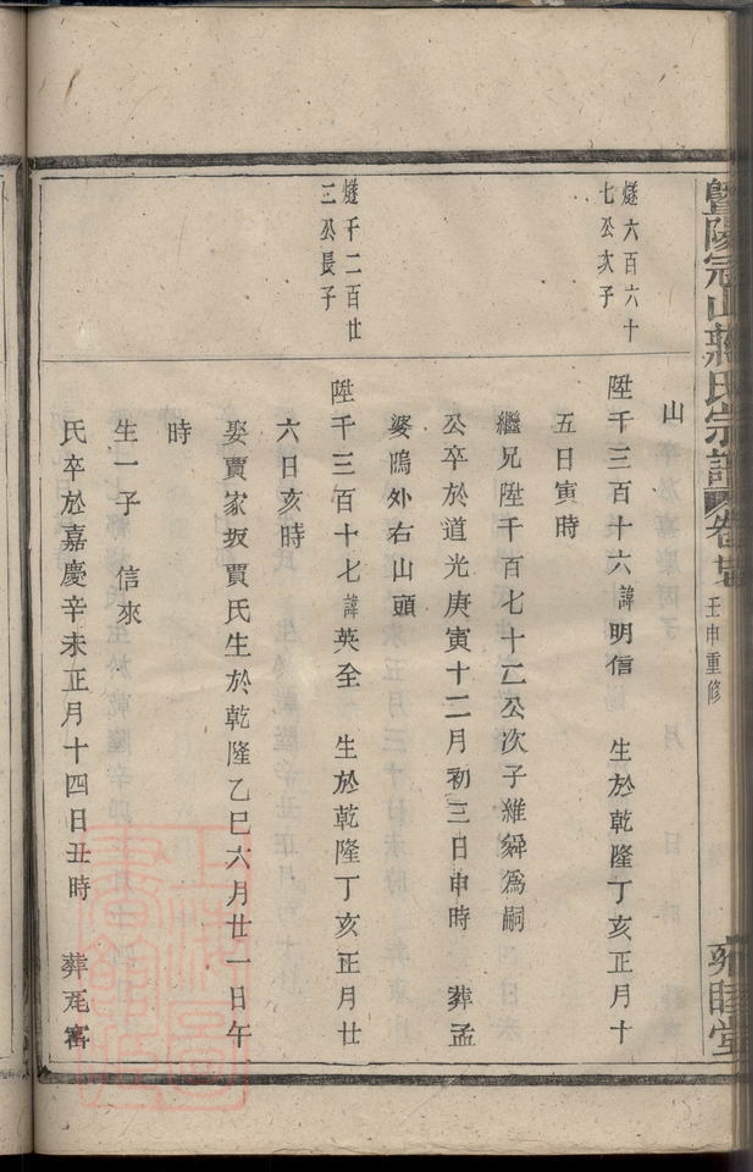 暨陽冠山蔣氏宗譜 壬申重修 雍睦堂
燧六百六十
七公次子
燧千二百廿
三公長子
山
陞千三百十六諱明信 生於乾隆丁亥正月十
五日寅時
繼兄陞千百七十二公次子維舜為嗣
公卒於道光庚寅十二月初三日申時 葬孟
婆隖外右山頭
陞千三百十七諱英全 生於乾隆丁亥正月廿
六日亥時
娶賈家坂賈氏生於乾隆乙巳六月廿一日午
時
生一子 信來
氏卒於嘉慶辛未正月十四日丑時 葬瓦窰